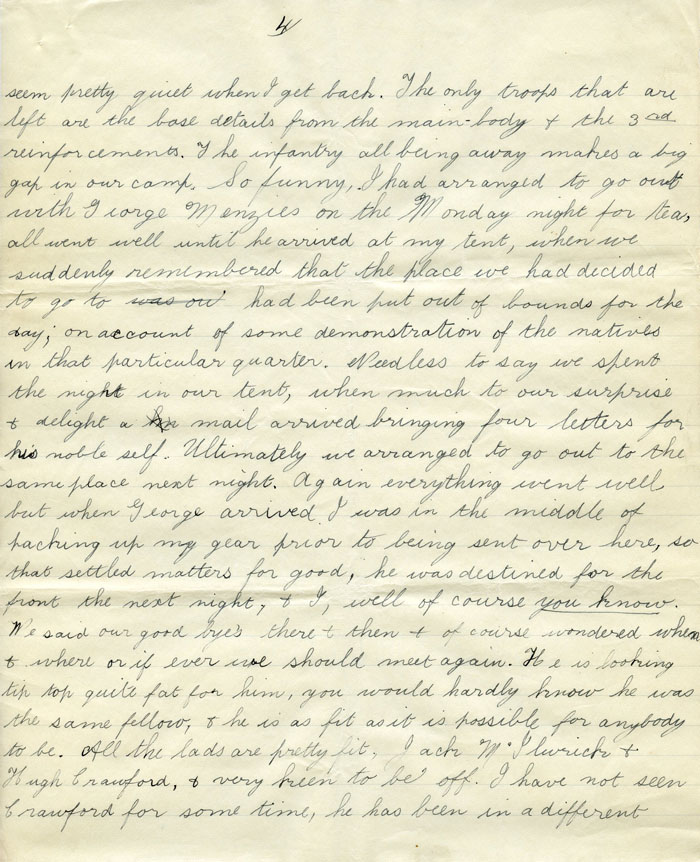 4
seem pretty quiet when I get back. The only troops that are
left are the base details from the main-body & the 3rd
reinforcements. The infantry all being away makes a big
gap in our camp. So funny, I had arranged to go out
with George Menzies on the Monday night for tea,
all went well until he arrived at my tent, when we
suddenly remembered that the place we had decided
to go to was had been put out of bounds for the
day; on account of some demonstration of the natives
in that particular quarter. Needless to say we spent
the night in our tent, when much to our surprise
& delight a mail arrived bringing four letters for
his noble self. Ultimately we arranged to go out to the
same place next night. Again everything went well
but when George arrived I was in the middle of
packing up my gear prior to being sent over here, so
that settled matters for good, he was destined for the
front the next night, & I, well of course you know.
We said our good bye's there & then & of course wondered when
& where or if ever we should meet again. He is looking
tip top quite fat for him, you would hardly know he was
the same fellow, & he is as fit as it is possible for anybody
to be. All the lads are pretty fit, Jack McIlwrick &
Hugh Crawford, & very keen to be off. I have not seen
Crawford for some time, he has been in a different